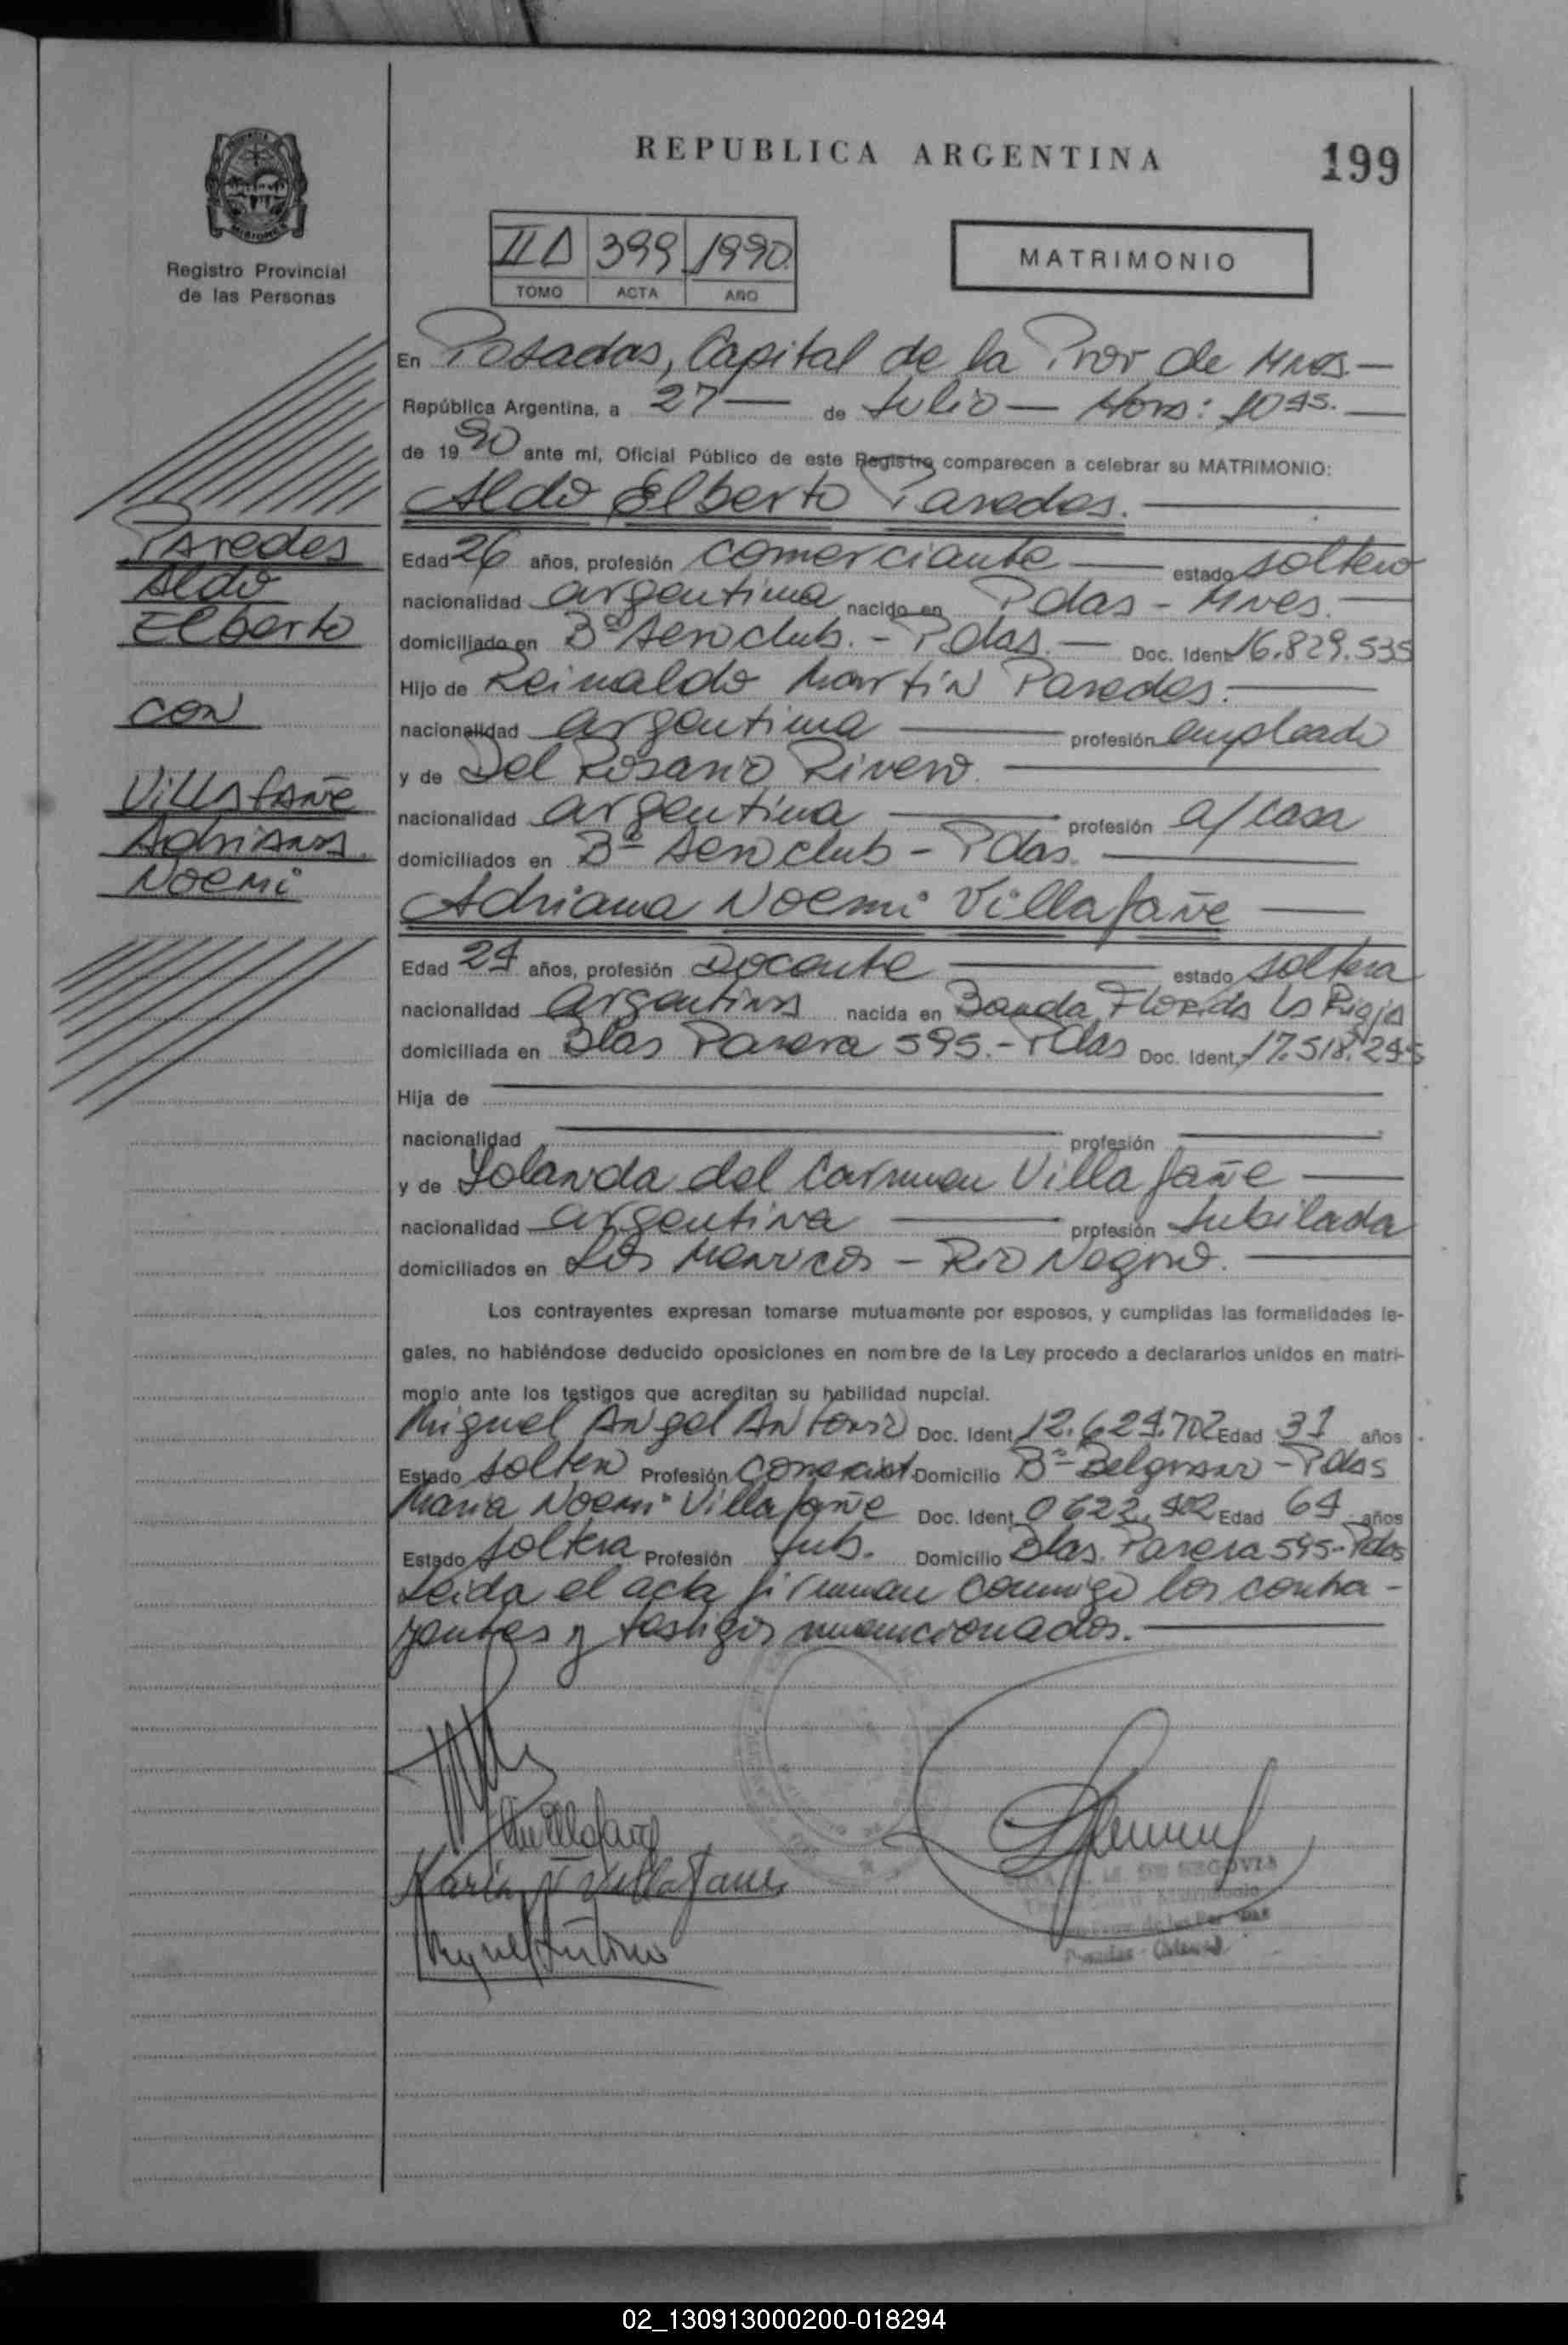 REPUBLICA ARGENTINA
199
Registro Provincial
de las Personas
MATRIMONIO
II D 399 1990
TOMO ACTA AÑO
En Posadas, Capital de la Prov de Mnes.—
República Argentina, a 27 — de Julio — Hora: 10 45.
de 1990 ante mí, Oficial Público de este Registro comparecen a celebrar su MATRIMONIO:
Aldo Elberto Paredes.
Paredes
Aldo
Elberto
con
Villafañe
Adriana
Noemi
Edad 26 años, profesión comerciante — estado soltero
nacionalidad argentina nacido en Pdas - Mnes.
domiciliado en Bº Aeroclub. - Pdas. — Doc. Ident. 16.829.535
Hijo de Reinaldo Martín Paredes.
nacionalidad argentina — profesión empleado
y de Del Rosario Rivero.
nacionalidad argentina — profesión a/casa
domiciliados en Bº Aeroclub - Pdas.
Adriana Noemi Villafañe
Edad 24 años, profesión Docente — estado soltera
nacionalidad argentina nacida en Banda Florida La Rioja
domiciliada en Blas Parera 595. - Pdas Doc. Ident. 17.518.245
Hija de
nacionalidad — profesión
y de Yolanda del Carmen Villafañe
nacionalidad argentina — profesión Jubilada
domiciliados en Los Menucos - Rio Negro.
Los contrayentes expresan tomarse mutuamente por esposos, y cumplidas las formalidades le-
gales, no habiéndose deducido oposiciones en nombre de la Ley procedo a declararlos unidos en matri-
monio ante los testigos que acreditan su habilidad nupcial.
Miguel Angel Antonio Doc. Ident. 12.624.702 Edad 31 años
Estado soltero Profesión Domicilio Bº Belgrano - Pdas
Maria Noemi Villafañe Doc. Ident. 0622.902 Edad 64 años
Estado soltera Profesión Jub. Domicilio Blas Parera 595 - Pdas
Leida el acta firman conmigo los contra-
yentes y testigos mencionados.
Maria N Villafañe
DE SEGOVIA
02_130913000200-018294